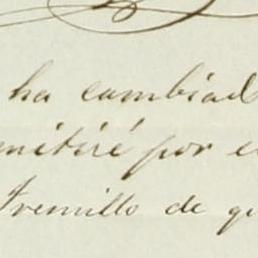 ha cambiad
mitiré por e
Tremillo de qu